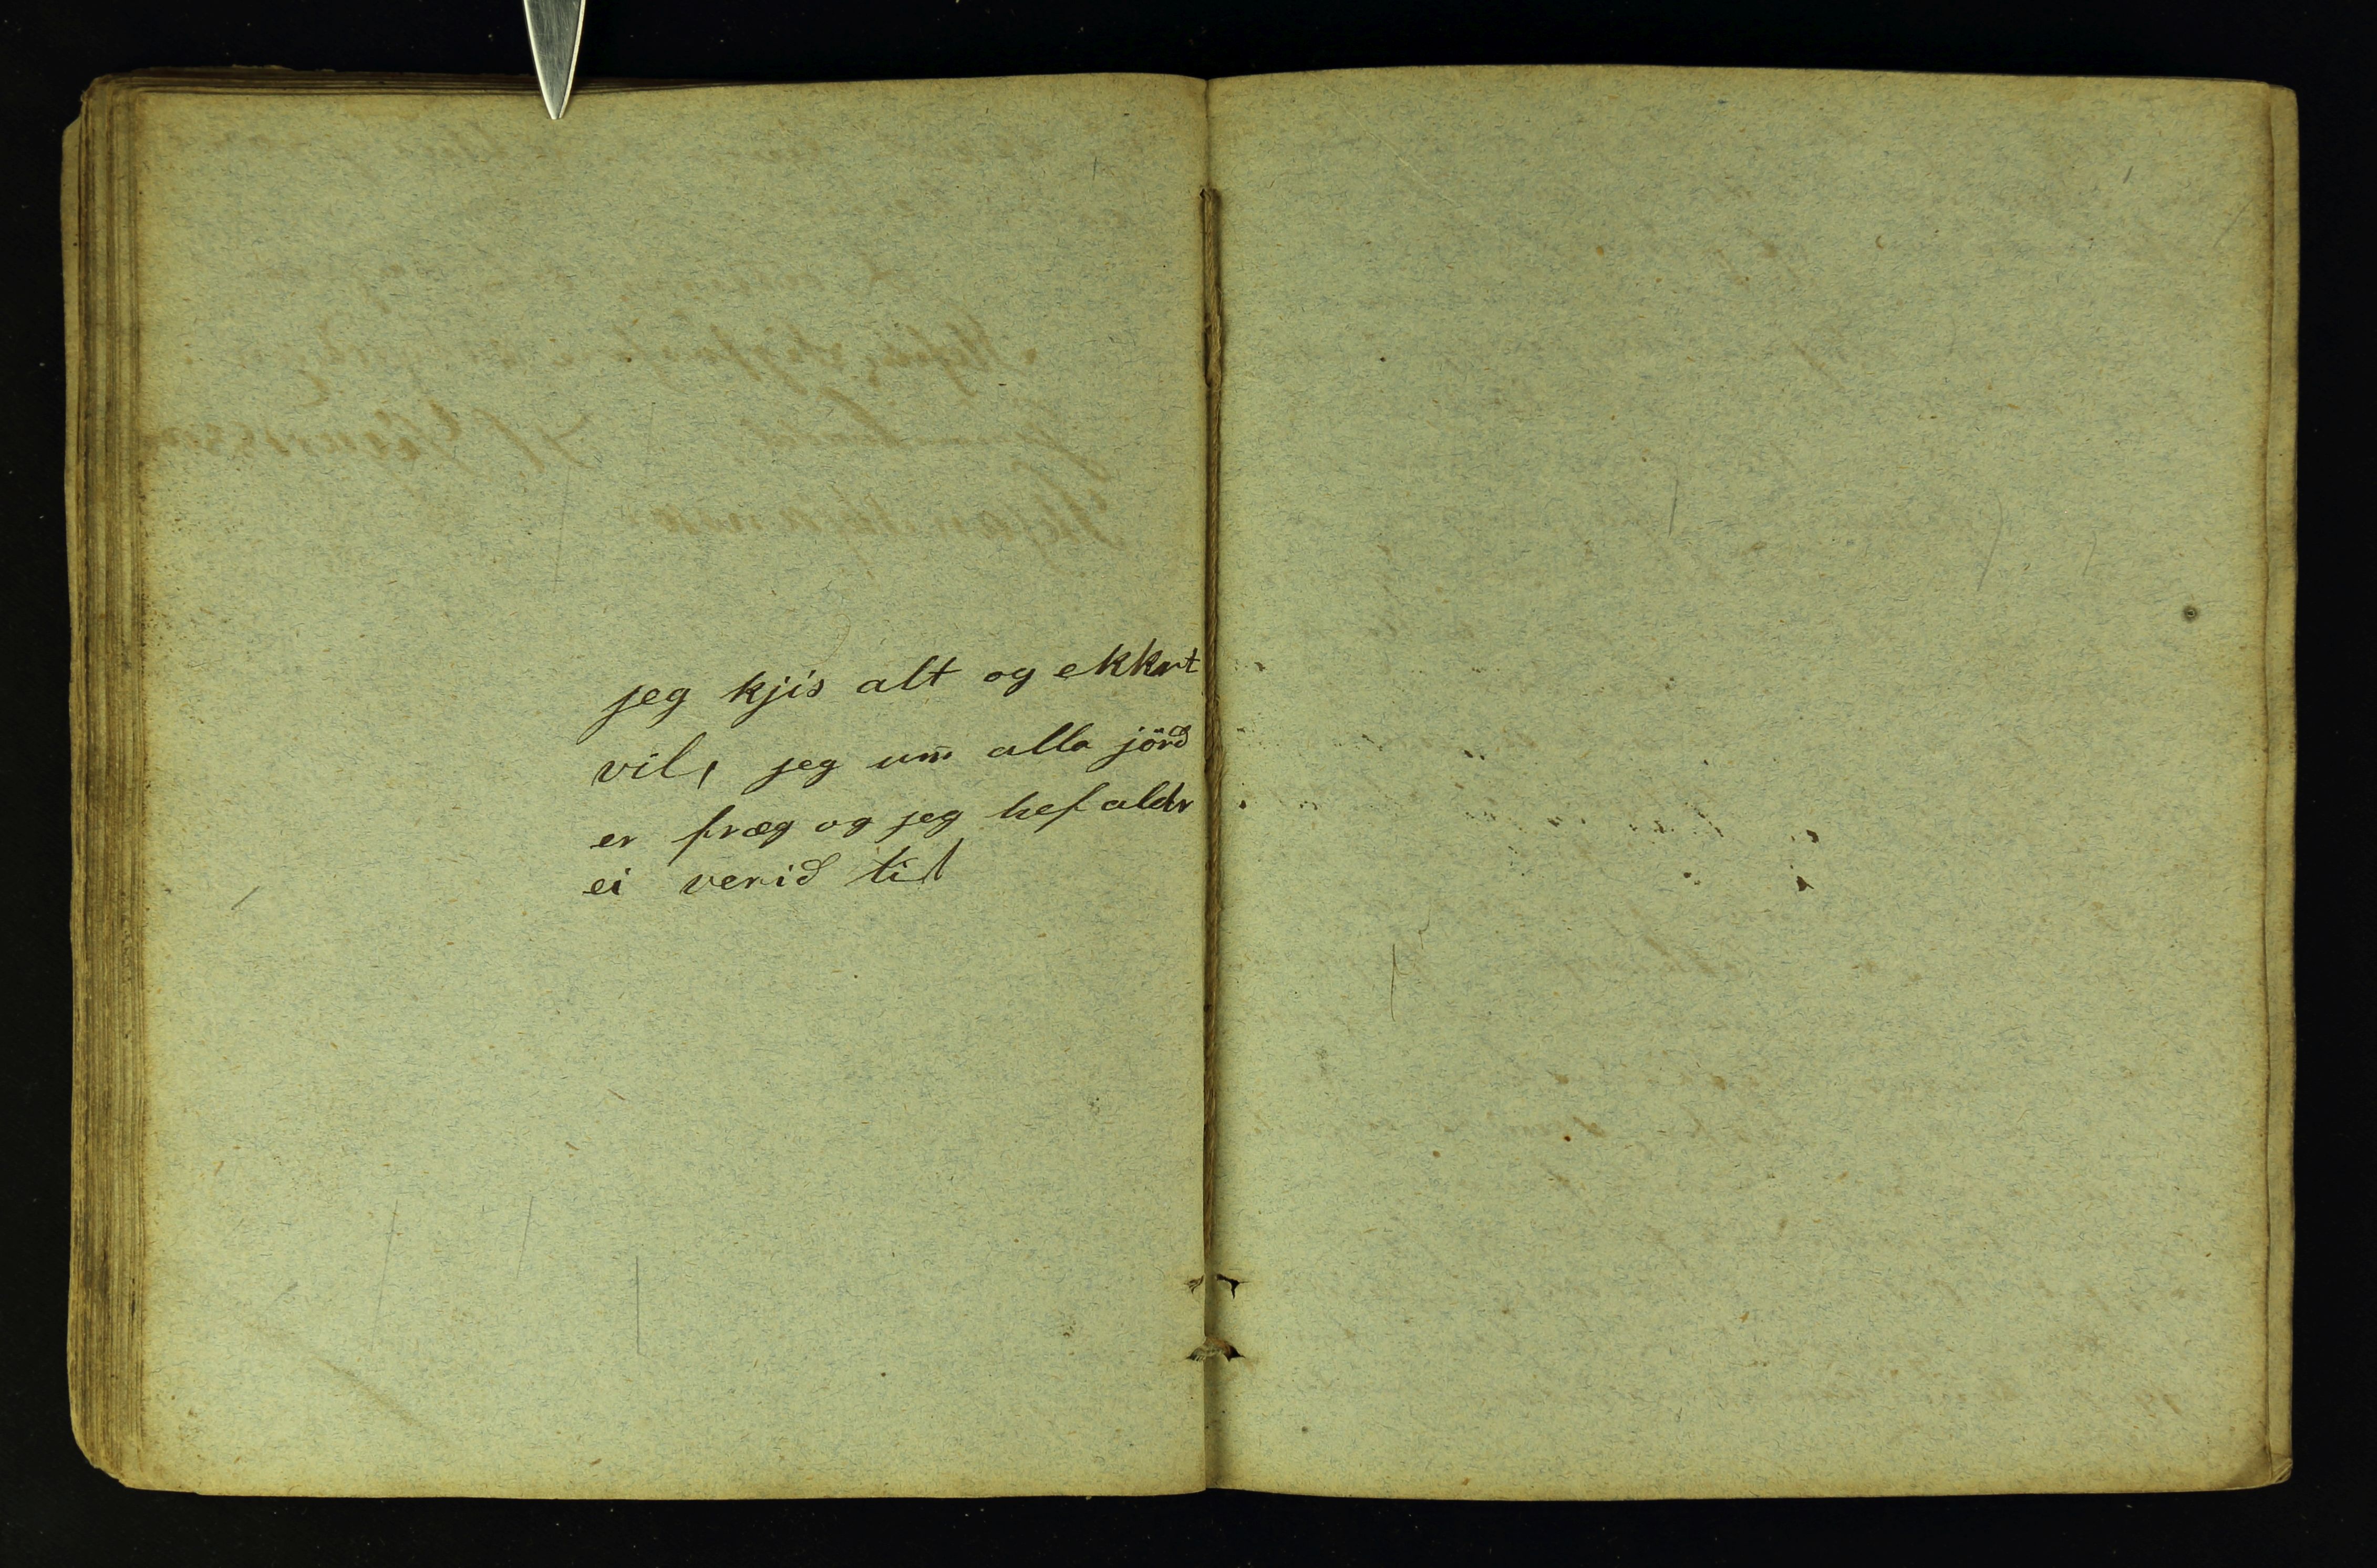 jeg kjís alt og ekkert
vil, jeg um̄ alla jörð
er fræg og jeg hef aldr
ei verið til